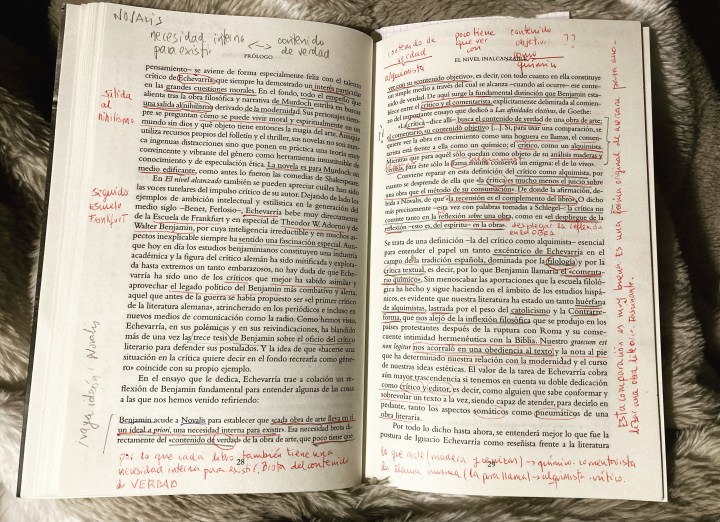 NOVALIS
necesidad interna <-> contenido
para existir de verdad
PRÓLOGO
pensamiento– se aviene de forma especialmente feliz con el talento
crítico de Echevarría, que siempre ha demostrado un interés particular
en las grandes cuestiones morales. En el fondo, todo el empeño que
alienta tras la obra filosófica y narrativa de Murdoch estriba en buscar
una salida al nihilismo derivado de la modernidad. Sus personajes siem-
pre se preguntan cómo se puede vivir moral y espiritualmente en un
mundo sin dios y qué objeto tienen entonces la magia del arte. Aunque
utiliza recursos propios del folletín y el thriller, sus novelas no son nun-
ca ingenuas distracciones sino que ponen en práctica una teoría muy
convincente y vibrante del género como herramienta insustituible de
conocimiento y de especulación ética. La novela es para Murdoch un
medio edificante, como antes lo fueron las comedias de Shakespeare.
En El nivel alcanzado también se pueden apreciar cuáles han sido
las voces tutelares del impulso crítico de su autor. Dejando de lado los
ejemplos de ambición intelectual y estilística en la generación del
medio siglo –Benet, Ferlosio–, Echevarría bebe muy directamente
de la Escuela de Frankfurt y en especial de Theodor W. Adorno y de
Walter Benjamin, por cuya inteligencia irreductible y en muchos as-
pectos inexplicable siempre ha sentido una fascinación especial. Aun-
que hoy en día los estudios benjaminianos constituyen una industria
académica y la figura del crítico alemán ha sido mitificada y explota-
da hasta extremos un tanto embarazosos, no hay duda de que Eche-
varría ha sido uno de los críticos que mejor ha sabido asimilar y
aprovechar el legado político del Benjamin más combativo y alerta,
aquel que antes de la guerra se había propuesto ser «el primer crítico
de la literatura alemana», atrincherado en los periódicos e incluso en
nuevos medios de comunicación como la radio. Como hemos visto,
Echevarría, en sus polémicas y en sus reivindicaciones, ha blandido
más de una vez las trece tesis de Benjamin sobre el oficio del crítico
literario para defender sus postulados. Y la idea de que «hacerse una
situación en la crítica quiere decir en el fondo recrearla como géne-
ro» coincide con su propio ejemplo.
En el ensayo que le dedica, Echevarría trae a colación un re-
flexión de Benjamin fundamental para entender algunas de cosas
a las que nos hemos venido refiriendo:
Benjamin acude a Novalis para establecer que «cada obra de arte lleva en sí
un ideal a priori, una necesidad interna para existir». Esa necesidad brota di-
rectamente del «contenido de verdad» de la obra de arte, que poco tiene que
28
salida al
nihilismo
seguido
Escuela
Frankfurt
vaya idea Novalis
por lo que cada libro también tiene una
necesidad interna para existir. Brota del contenido
de VERDAD
contenido de poco tiene contenido
verdad que ver objetivo ??
con como
alquimista químico
EL NIVEL INALCANZABLE
ver con su contenido objetivo», es decir, con todo cuanto en ella constituye
un simple medio a través del cual se alcanza –cuando así ocurre– ese conte-
nido de verdad. De aquí surge la fundamental distinción que Benjamin esta-
blece entre el crítico y el comentarista, explícitamente delimitada al comien-
zo del importante ensayo que dedicó a Las afinidades electivas, de Goethe:
«La crítica –dice allí– busca el contenido de verdad de una obra de arte;
el comentario, su contenido objetivo [...]. Si, para usar una comparación, se
quiere ver la obra en crecimiento como una hoguera en llamas, el comenta-
rista está frente a ella como un químico; el crítico, como un alquimista.
Mientras que para aquél sólo quedan como objeto de su análisis madera y
ceniza, para éste sólo la llama misma es un enigma: el de lo vivo».
Conviene reparar en esta definición del crítico como alquimista, por
cuanto se desprende de ella que «la crítica es mucho menos el juicio sobre
una obra que el método de su consumación». De donde la afirmación, de-
bida a Novalis, de que «la recensión es el complemento del libro». O dicho
más precisamente –esta vez con palabras tomadas a Schlegel– la crítica no
consiste tanto en la reflexión sobre una obra, como en el despliegue de la
reflexión –esto es, del espíritu– en la obra.
desplegar la reflexión
en el obra
Se trata de una definición –la del crítico como alquimista– esencial
para entender el papel un tanto excéntrico de Echevarría en el
campo de la tradición española, dominada por la filología y por la
crítica textual, es decir, por lo que Benjamin llamaría el «comenta-
rio químico». Sin menoscabar las aportaciones que la escuela filoló-
gica ha hecho y sigue haciendo en el ámbito de los estudios hispá-
nicos, es evidente que nuestra literatura ha estado un tanto huérfana
de alquimistas, lastrada por el peso del catolicismo y la Contrarre-
forma, que nos alejó de la inflexión filosófica que se produjo en los
países protestantes después de la ruptura con Roma y su conse-
cuente intimidad hermenéutica con la Biblia. Nuestro graecum est
non legitur nos acorraló en una obediencia al texto y la nota al pie
que ha determinado nuestra relación con la modernidad y el curso
de nuestras ideas estéticas. El valor de la tarea de Echevarría cobra
aún mayor trascendencia si tenemos en cuenta su doble dedicación
como crítico y editor, es decir, como alguien que sabe conformar y
sobrevolar un texto a la vez, siendo capaz de atender, para decirlo en
pedante, tanto los aspectos somáticos como pneumáticos de una
obra literaria.
Por todo lo dicho hasta ahora, se entenderá mejor lo que fue la
postura de Ignacio Echevarría como reseñista frente a la literatura
29
lo que arde (madera y cenizas) → químico. comentarista
la llama misma (la pira llama) → alquimista crítico.
Esta comparación es muy buena. Es una forma original de
definir una obra literaria.